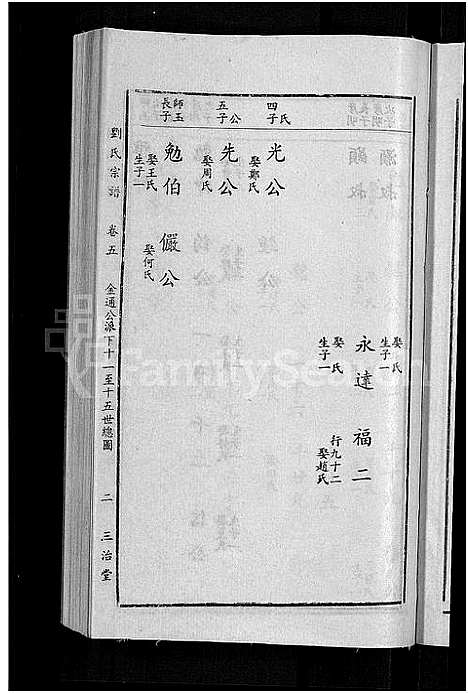 娶氏
生子一
永達
娶氏
生子一
福二
行九十二
娶趙氏
四子 氏
光公
娶鄭氏
五子 公
先公
娶周氏
長子 師玉
勉伯
娶王氏
生子一
儼公
娶何氏
劉氏宗譜 卷五 金通公派下十一至十五世總圖 二 三治堂
FamilySearch